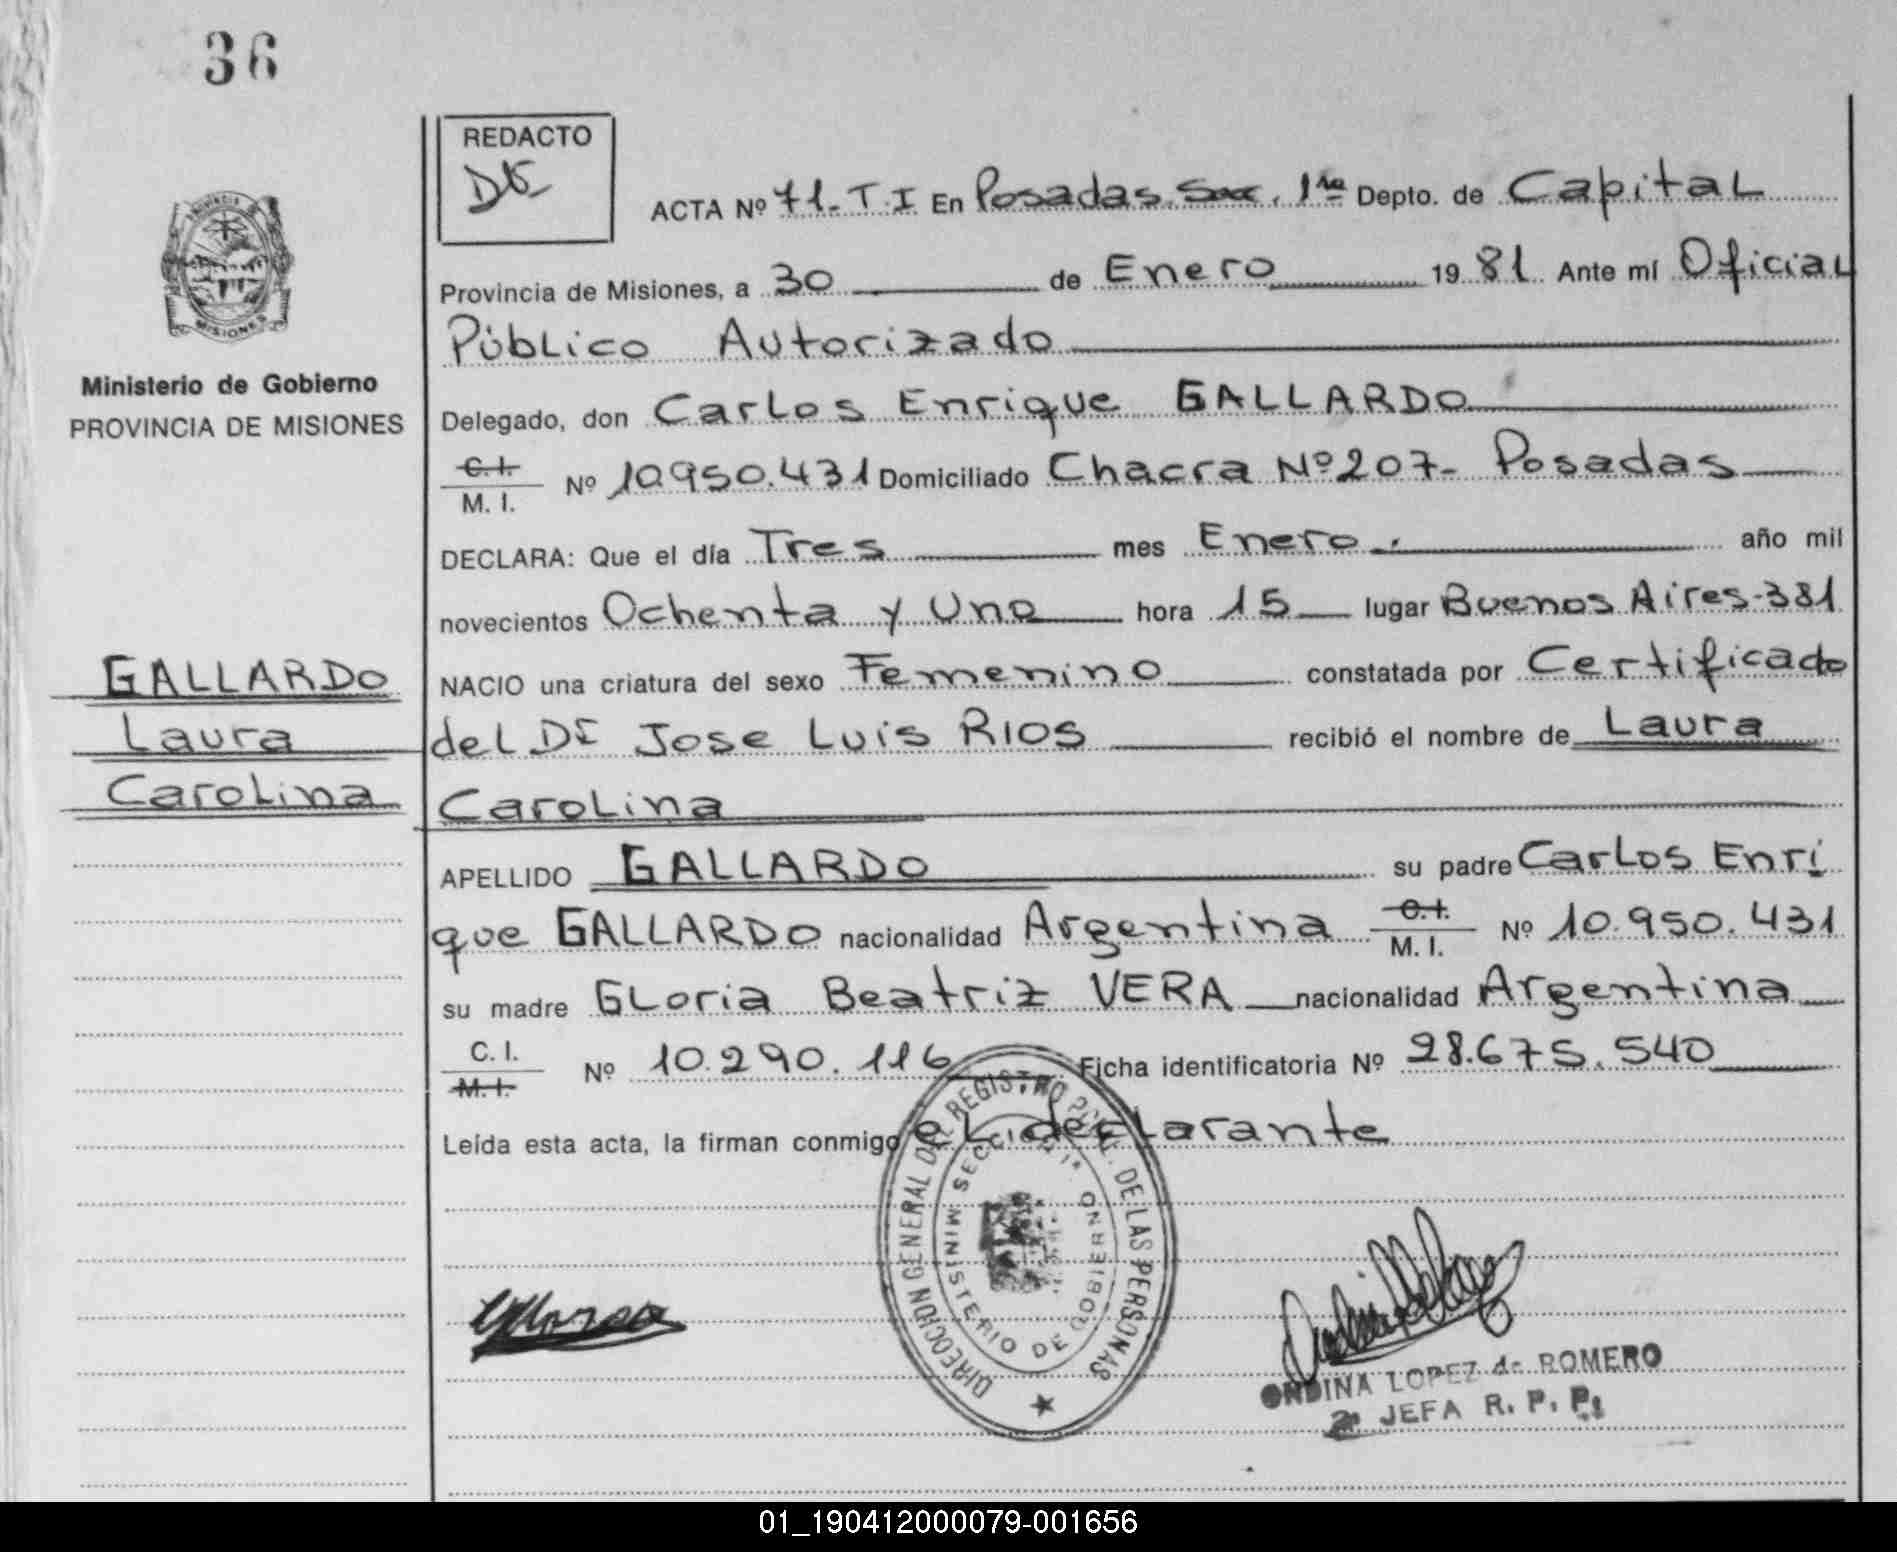 36
REDACTO
ACTA Nº 71-T.I En Posadas Secc. 1ra Depto. de Capital
Provincia de Misiones, a 30 de Enero 1981 Ante mí Oficial
Público Autorizado
Delegado, don Carlos Enrique GALLARDO
C. I.
M. I. Nº 10.950.431 Domiciliado Chacra Nº 207- Posadas
DECLARA: Que el día Tres mes Enero. año mil
novecientos Ochenta y Uno hora 15 lugar Buenos Aires-381
NACIO una criatura del sexo Femenino constatada por Certificado
del Dr Jose Luis RIOS recibió el nombre de Laura
Carolina
APELLIDO GALLARDO su padre Carlos Enri
que GALLARDO nacionalidad Argentina C. I.
M. I. Nº 10.950.431
su madre Gloria Beatriz VERA nacionalidad Argentina
C. I.
M. I. Nº 10.290.116 Ficha identificatoria Nº 28.675.540
Leída esta acta, la firman conmigo el declarante
PROVINCIA DE
MISIONES
Ministerio de Gobierno
PROVINCIA DE MISIONES
GALLARDO
Laura
Carolina
DIRECCION GENERAL DEL REGISTRO PCIAL. DE LAS PERSONAS
SECCION 1ª
MINISTERIO DE GOBIERNO
ONDINA LOPEZ de ROMERO
2ª JEFA R. P. P.
01_190412000079-001656